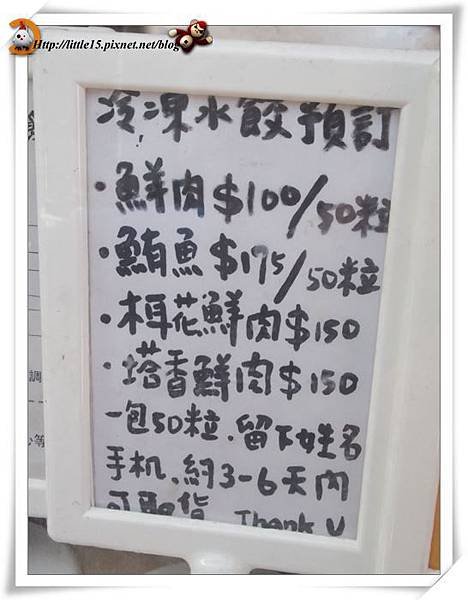 Http://little15.pixnet.net/blog
冷凍水餃預訂
·鮮肉$100/50粒
·鮪魚$175/50粒
·椪花鮮肉$150
·塔香鮮肉$150
一包50粒.留下姓名
手机.約3-6天內
可取貨 Thank U
調
心等